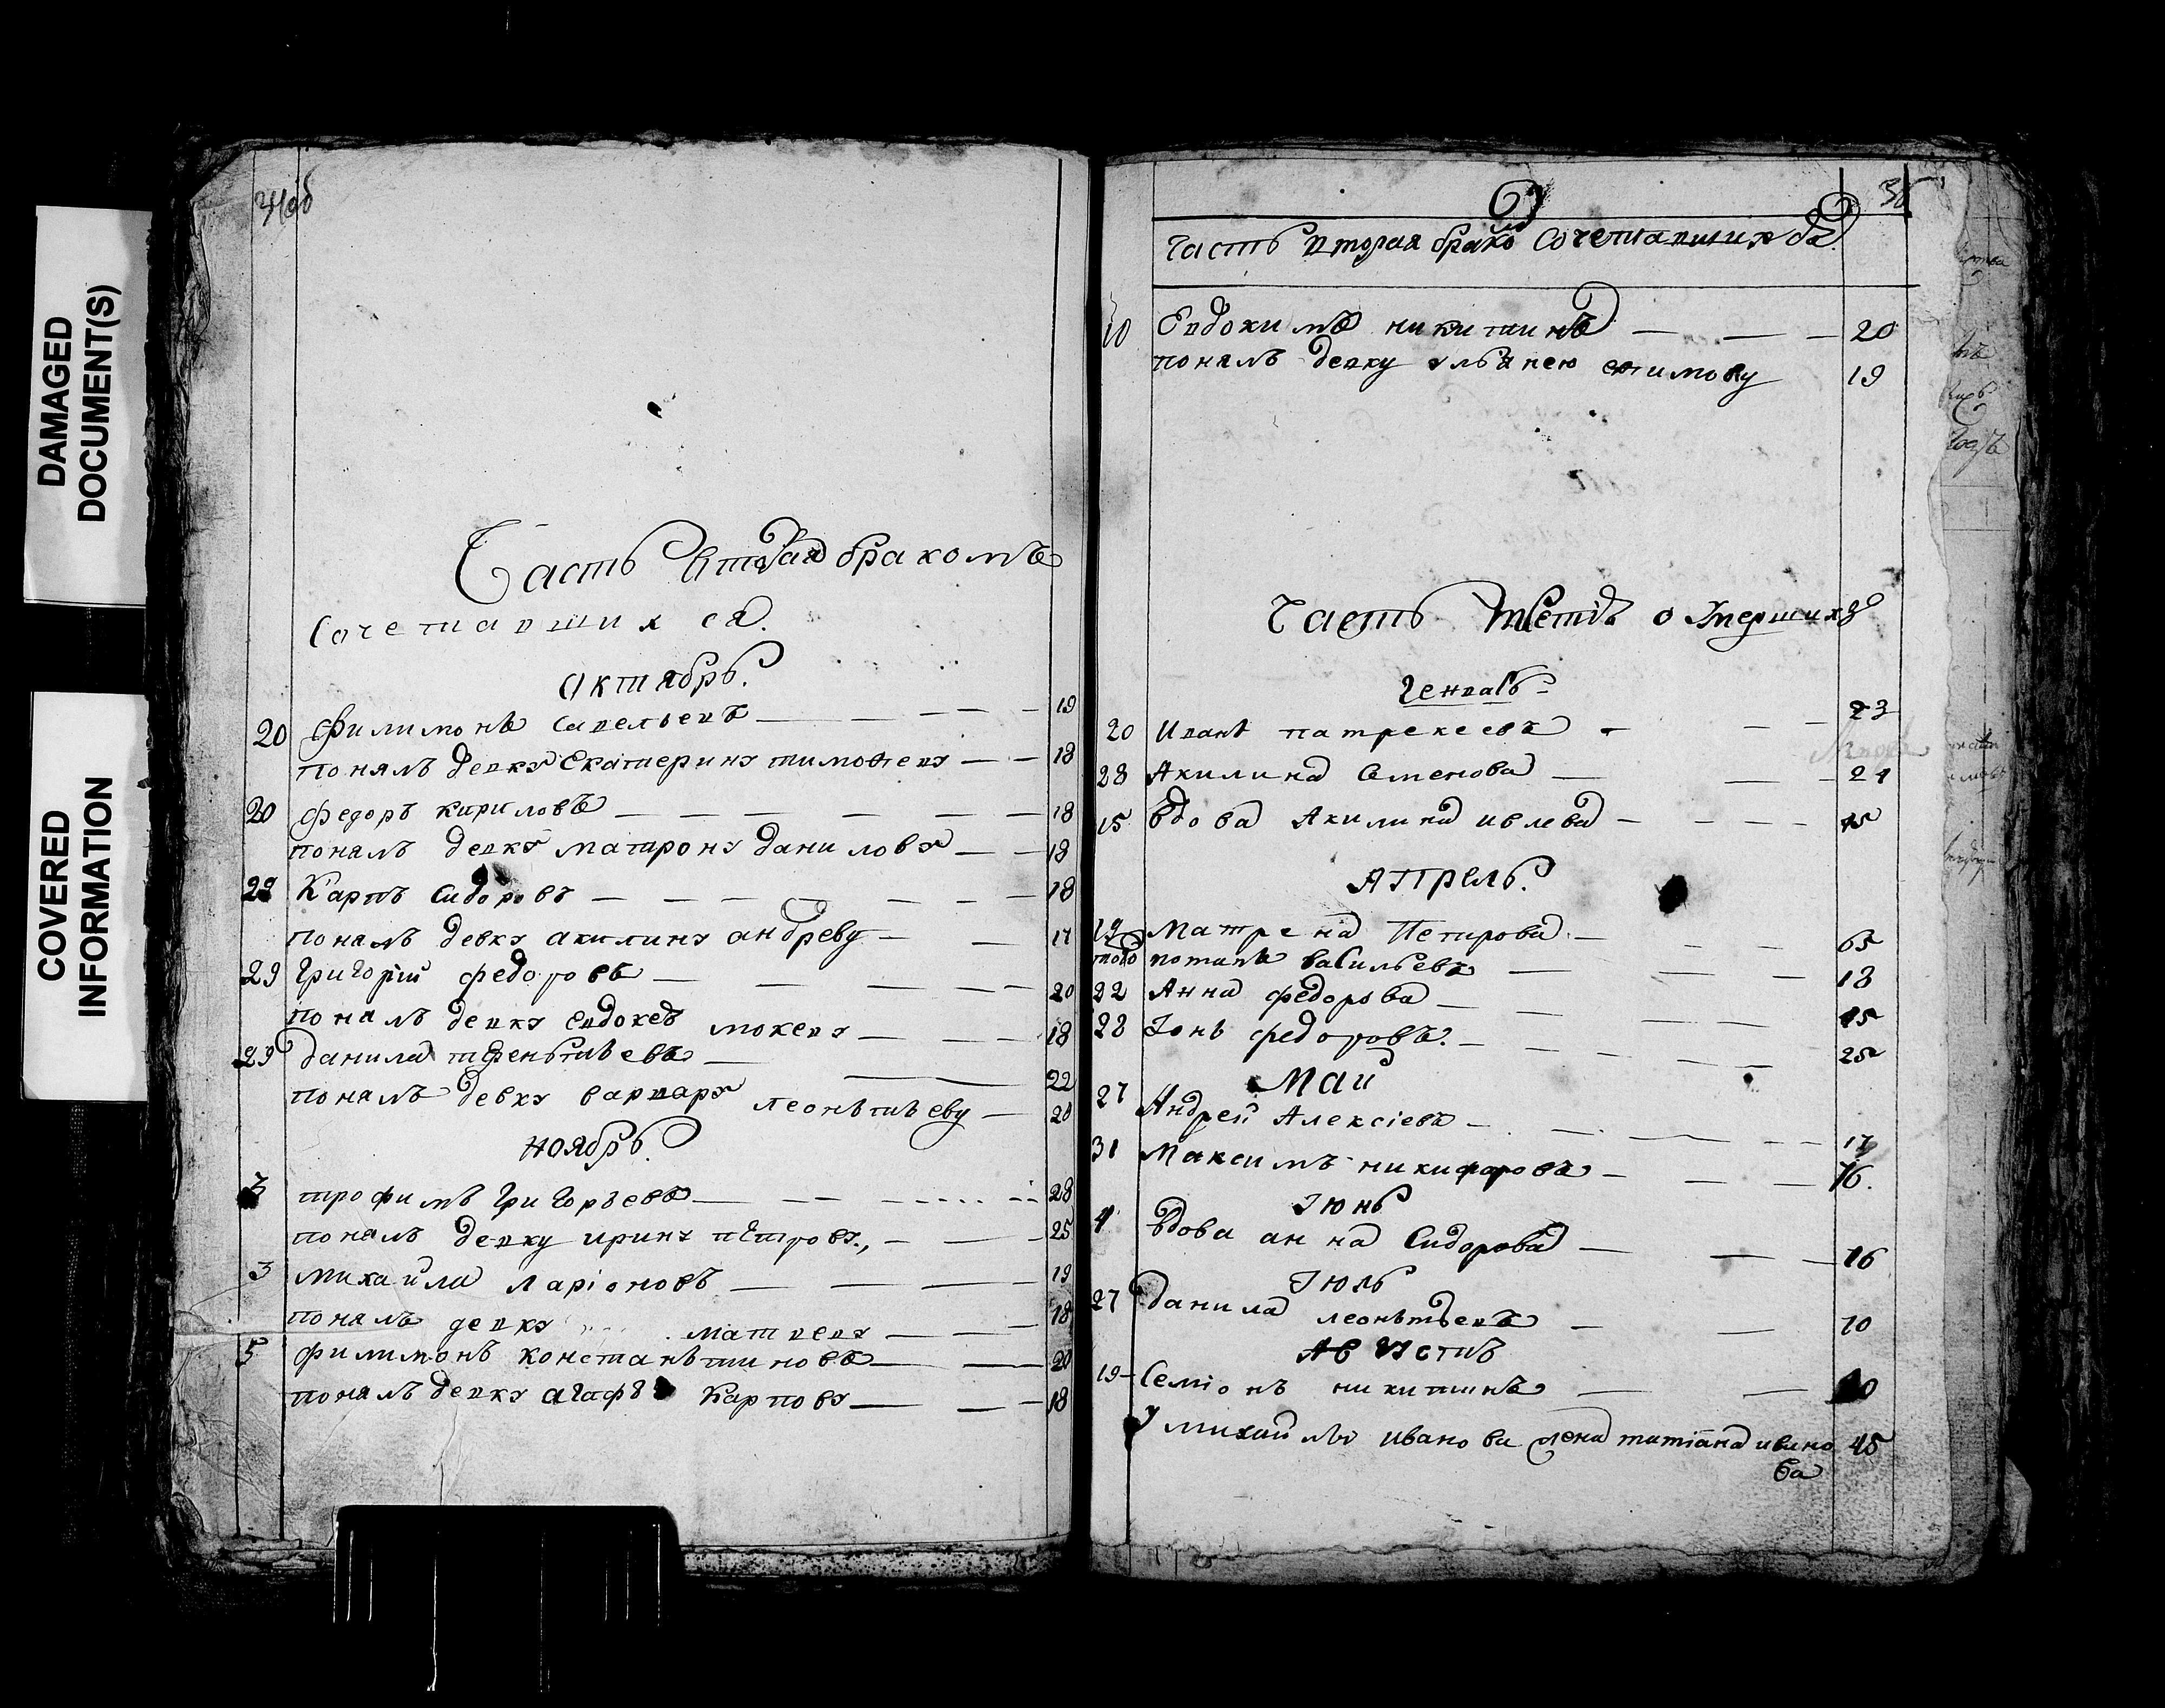 DAMAGED
DOCUMENT(S)
COVERED
INFORMATION
Часть вторая бракомъ
сочетавшихся.
Октябрь.
20 Филимонъ савельевъ 19
понялъ девкѹ Екатеринѹ тимофеевѹ 18
20 федоръ кириловъ 18
понялъ девкѹ матронѹ даниловѹ 18
22 Карпъ сидоровъ 18
понялъ девкѹ акилинѹ андреву 17
29 Григорій федоровъ 20
понялъ девкѹ евдокею мокевѹ 18
29 данила терентьевъ 22
понялъ девкѹ варварѹ леонтьеву 20
ноябрь.
3 трофимъ григорьевъ 28
понялъ девку иринѹ петровѹ 25
3 михайла ларіоновъ 19
понялъ девкѹ матвевѹ 18
5 филимонъ константиновъ 20
понялъ девкѹ агафью Карповѹ 18
35
часть вторая брако сочетавшихся
10 Евдокимъ никитинъ 20
понялъ девку ѹльянею ефимову 19
часть третія о ѹмершихъ
Генварь
20 Иванъ патрекеевъ 23
28 Акилина семенова 21
15 вдова Акилина ивлева
Апрель.
19 Матрена Петрова 65
того потапъ васильевъ 18
22 Анна федорова
28 Іонъ федоровъ 25
Май
27 Андрей Алексіевъ 17
31 Максимъ никифоровъ 76.
Іюнь
4 вдова анна сидорова 76
Іюль
27 данила леонтьевъ 70
Август
19 Семіонъ никитинъ
У михайлы иванова жена татіана ивано 45
ва